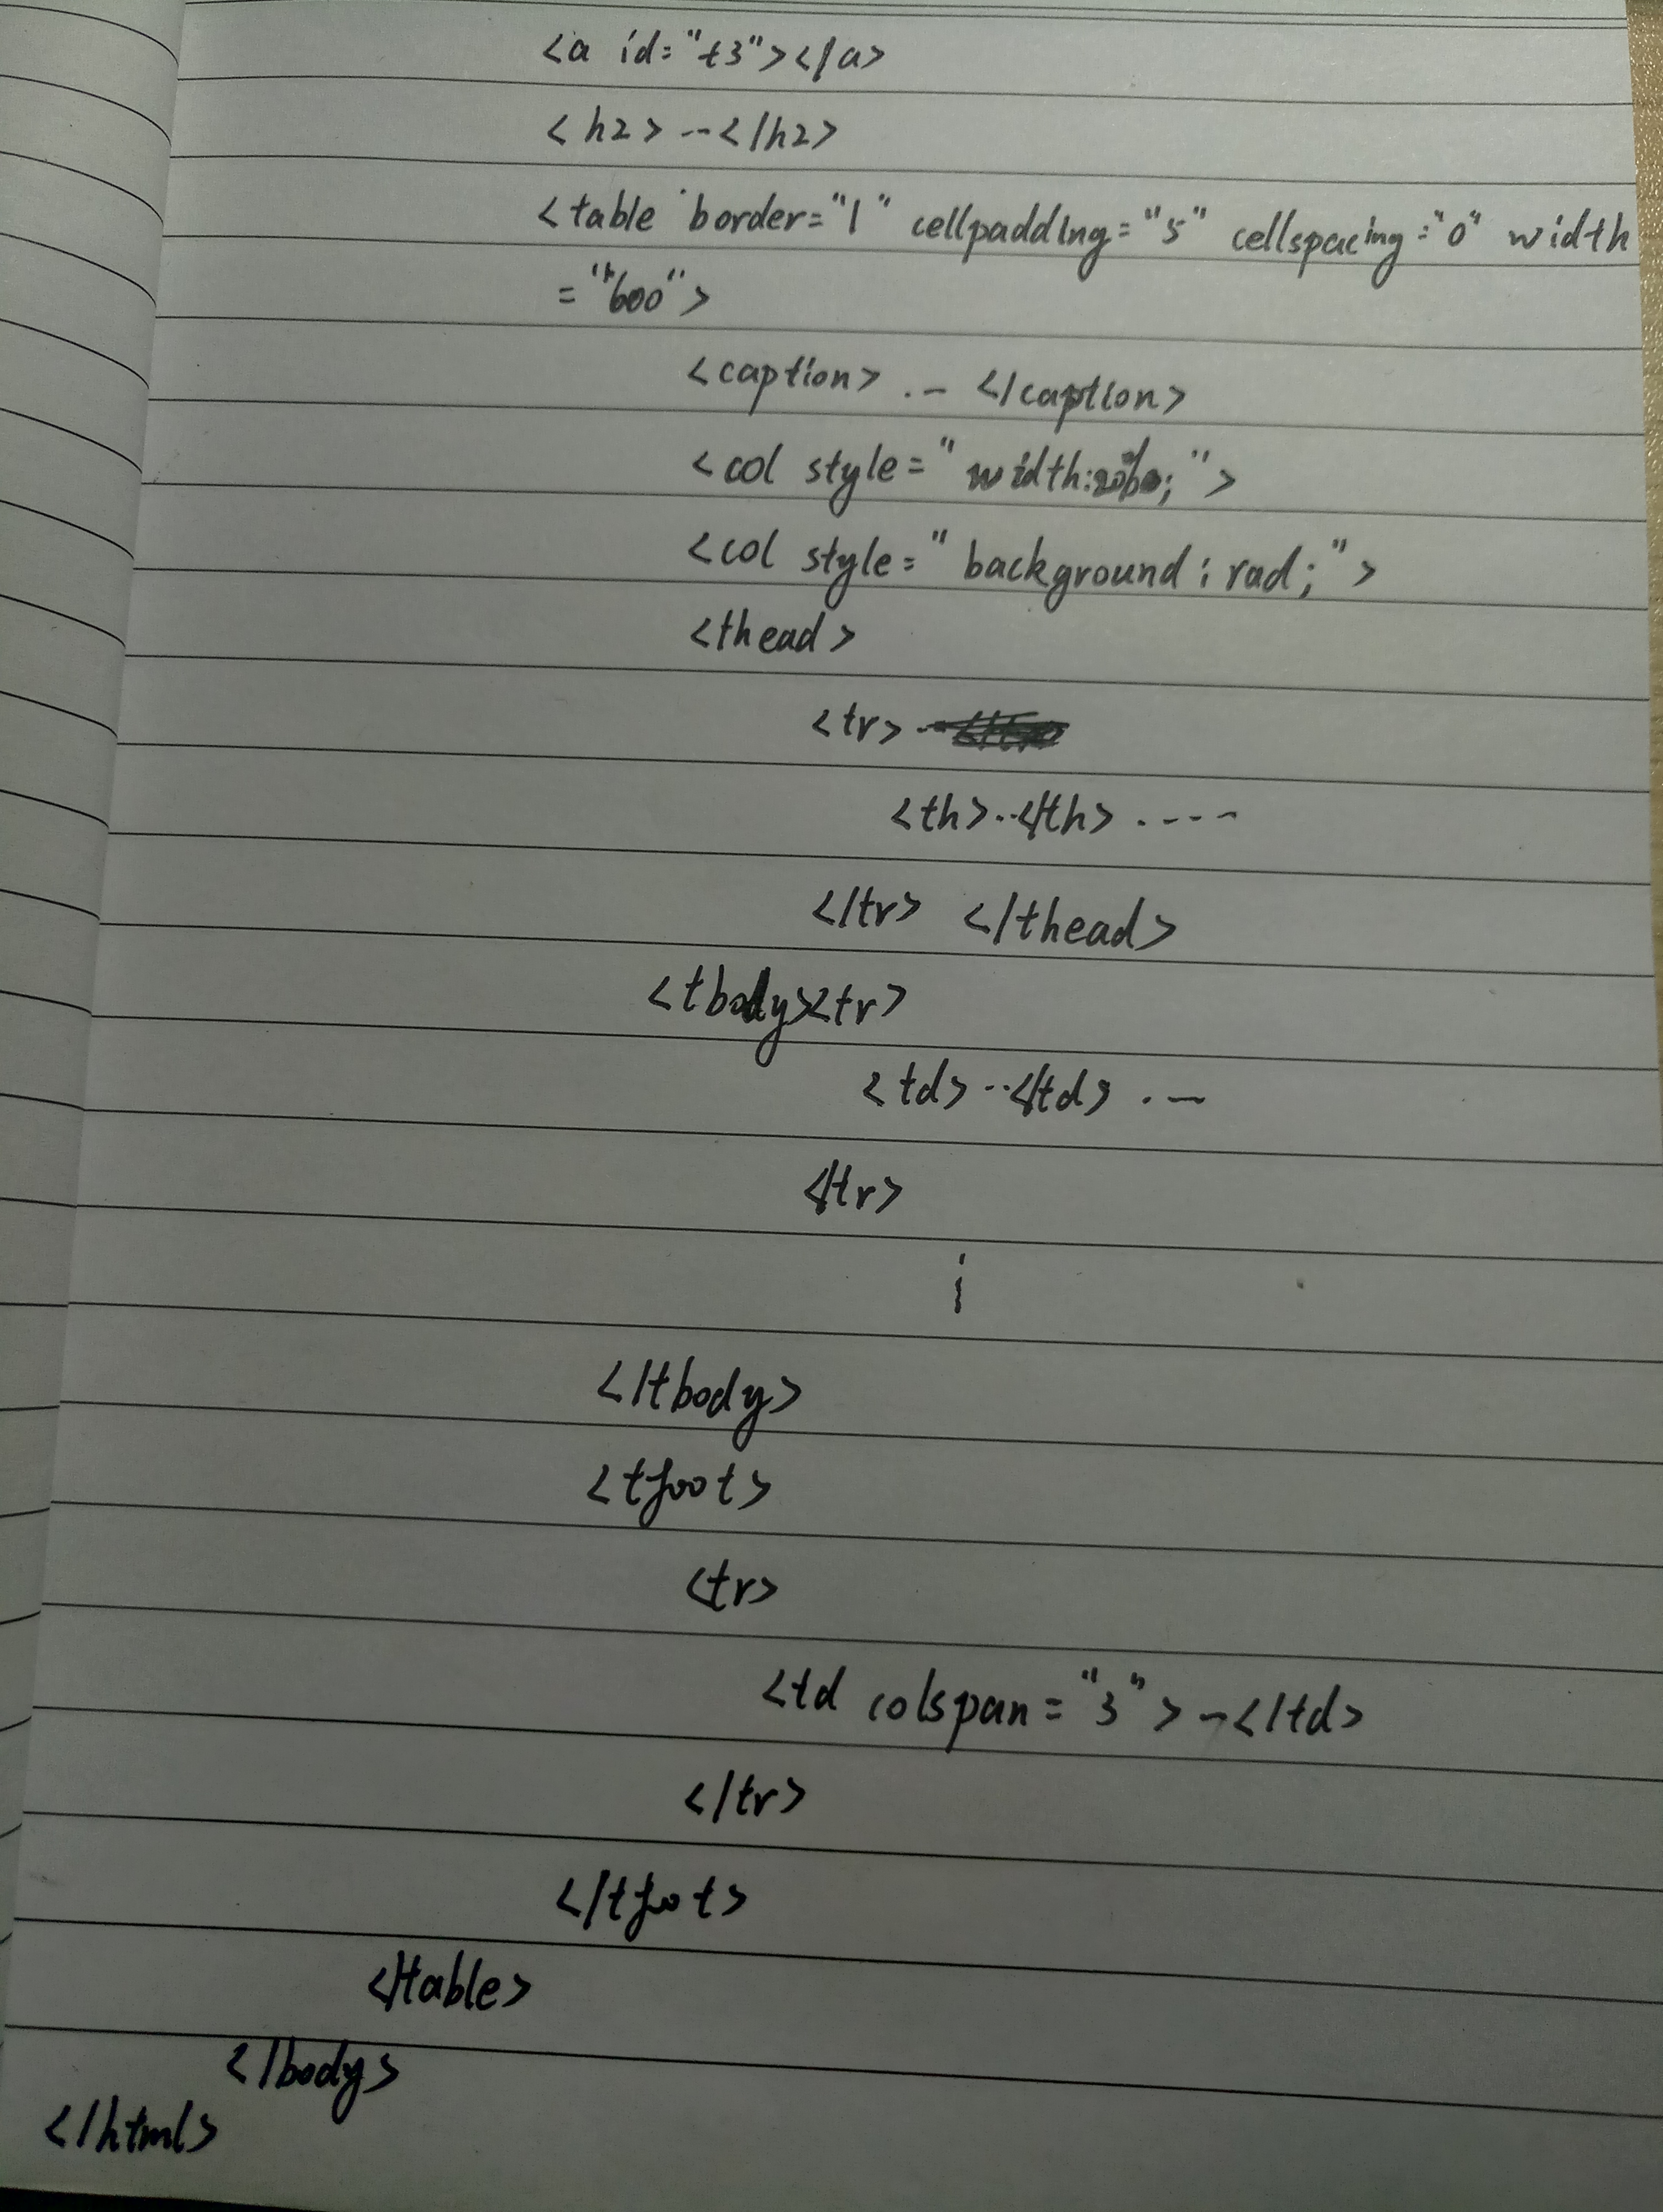 <a id="t3"></a>
<h2> -- </h2>
<table border="1" cellpadding="5" cellspacing="0" width
="600">
<caption> .-- </caption>
<col style="width:20%;">
<col style="background: rad;">
<thead>
<tr>
<th>..</th> ----
</tr> </thead>
<tbody><tr>
<td>..</td> .--
</tr>
⋮
</tbody>
<tfoot>
<tr>
<td colspan="3">--</td>
</tr>
</tfoot>
</table>
</body>
</html>